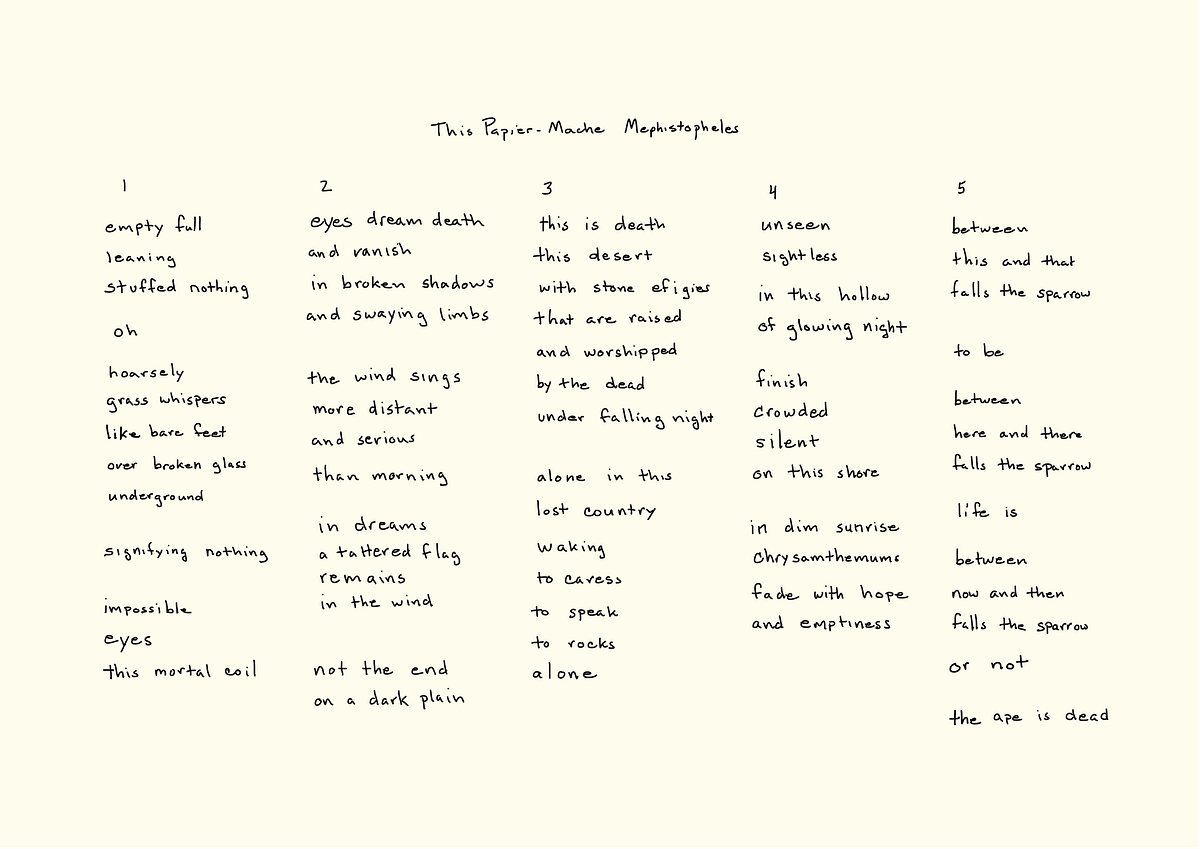 This Papier-Mache Mephistopheles
1
empty full
leaning
stuffed nothing
oh
hoarsely
grass whispers
like bare feet
over broken glass
underground
signifying nothing
impossible
eyes
this mortal coil
2
eyes dream death
and vanish
in broken shadows
and swaying limbs
the wind sings
more distant
and serious
than morning
in dreams
a tattered flag
remains
in the wind
not the end
on a dark plain
3
this is death
this desert
with stone efigies
that are raised
and worshipped
by the dead
under falling night
alone in this
lost country
waking
to caress
to speak
to rocks
alone
4
unseen
sightless
in this hollow
of glowing night
finish
crowded
silent
on this shore
in dim sunrise
chrysamthemums
fade with hope
and emptiness
5
between
this and that
falls the sparrow
to be
between
here and there
falls the sparrow
life is
between
now and then
falls the sparrow
or not
the ape is dead